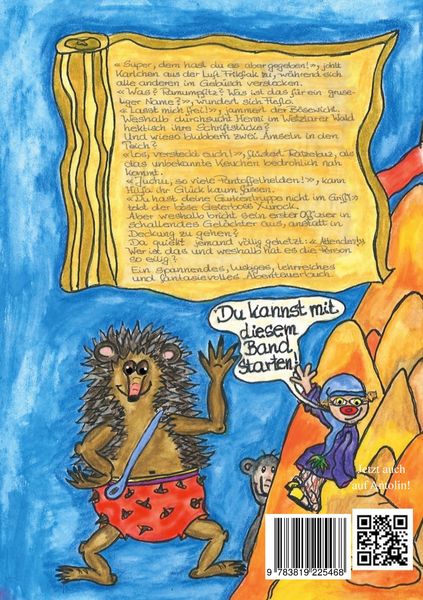 « Super, dem hast du es aber gegeben! », johlt
Karlchen aus der Luft Frikfak zu, während sich
alle anderen im Gebüsch verstecken.
« Was? Ramumpfitz? Was ist das für ein gruse-
liger Name? », wundert sich Heflo.
« Lasst mich frei! », jammert der Bösewicht.
Weshalb durchsucht Hermi im Wetzlarer Wald
hektisch ihre Schriftstücke?
Und wieso blubbern zwei Amseln in den
Teich?
« Los, versteckt euch! », flüstert Ratzebuz, als
das unbekannte Keuchen bedrohlich nah
kommt.
« Juchu, so viele Pantoffelhelden! », kann
Hilfa ihr Glück kaum fassen.
« Du hast deine Gurkentruppe nicht im Griff! »
tobt der böse Geisterboss Xurock.
Aber weshalb bricht sein erster Offizier in
schallendes Gelächter aus, anstatt in
Deckung zu gehen?
Da quiekt jemand völlig gehetzt: « Attendez! »
Wer ist das und weshalb hat es die Person
so eilig?
Ein spannendes, lustiges, lehrreiches
und fantasievolles Abenteuerbuch.
Du kannst mit
diesem
Band
starten!
Jetzt auch
auf Antolin!
9 783819 225468